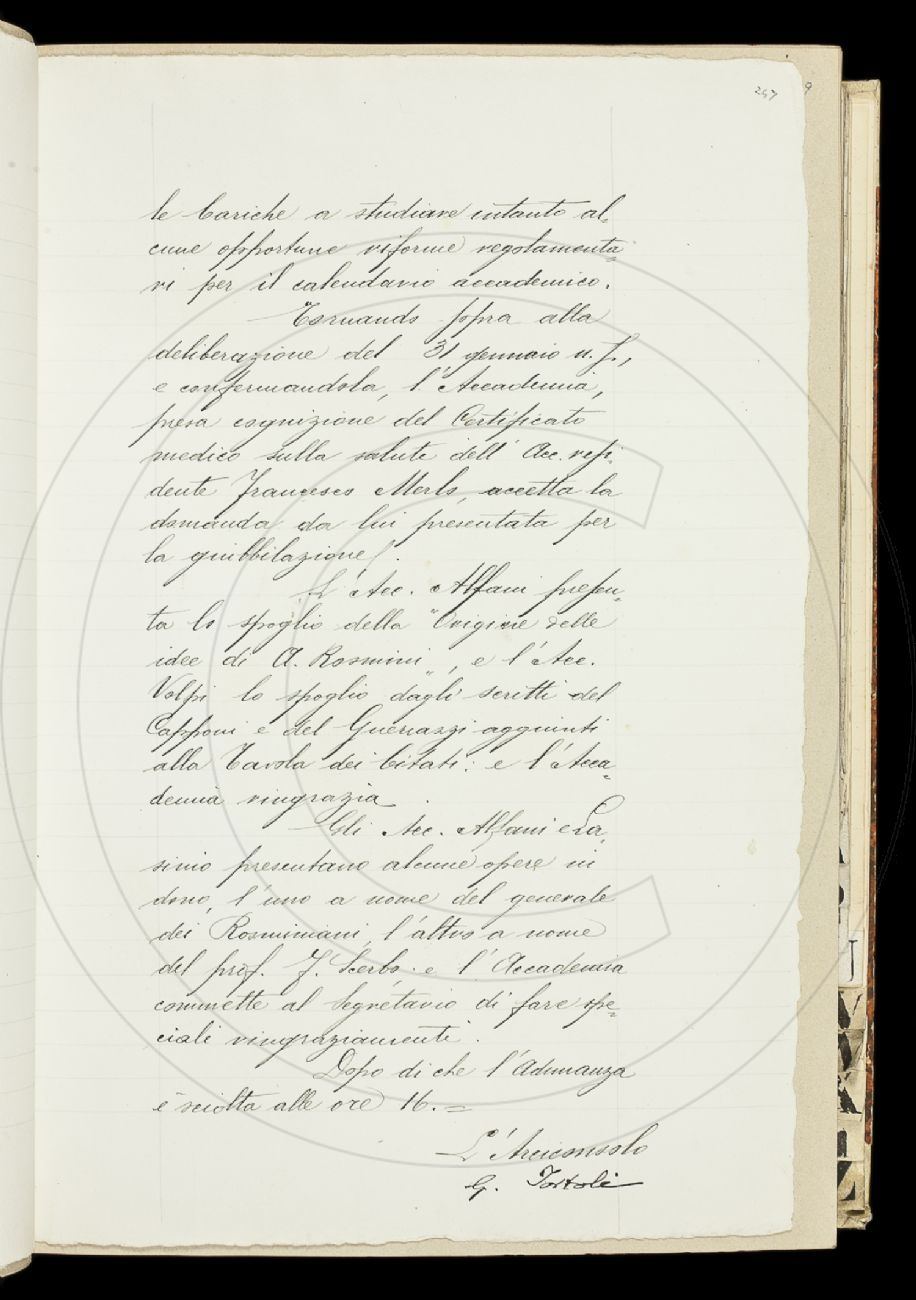 247
le Cariche a studiare intanto al-
cune opportune riforme regolamenta-
ri per il calendario accademico.
Tornando sopra alla
deliberazione del 31 gennaio u. s.,
e confermandola, l'Accademia,
presa cognizione del Certificato
medico sulla salute dell'Acc. resi-
dente Francesco Merlo, accetta la
domanda da lui presentata per
la giubbilazione.
L'Acc. Alfani presen-
ta lo spoglio della "Origine delle
idee di A. Rosmini", e l'Acc.
Volpi lo spoglio dagli scritti del
Capponi e del Guerrazzi aggiunti
alla Tavola dei Citati: e l'Acca-
demia ringrazia.
Gli Acc. Alfani e La-
sinio presentano alcune opere in
dono, l'uno a nome del generale
dei Rosminiani, l'altro a nome
del prof. F. Scerbo: e l'Accademia
commette al Segretario di fare spe-
ciali ringraziamenti.
Dopo di che l'Adunanza
è sciolta alle ore 16. =
L'Arciconsolo
G. Tortoli